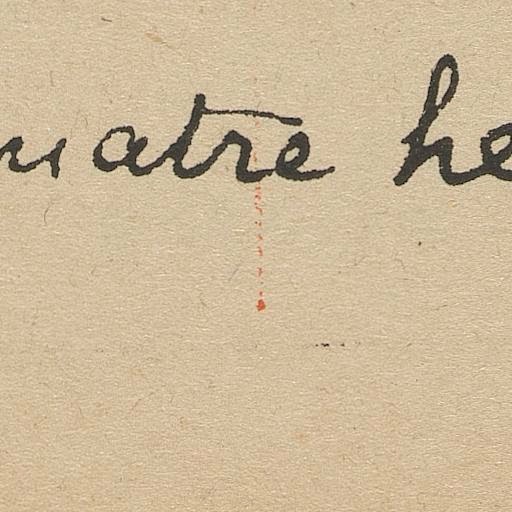 uatre he